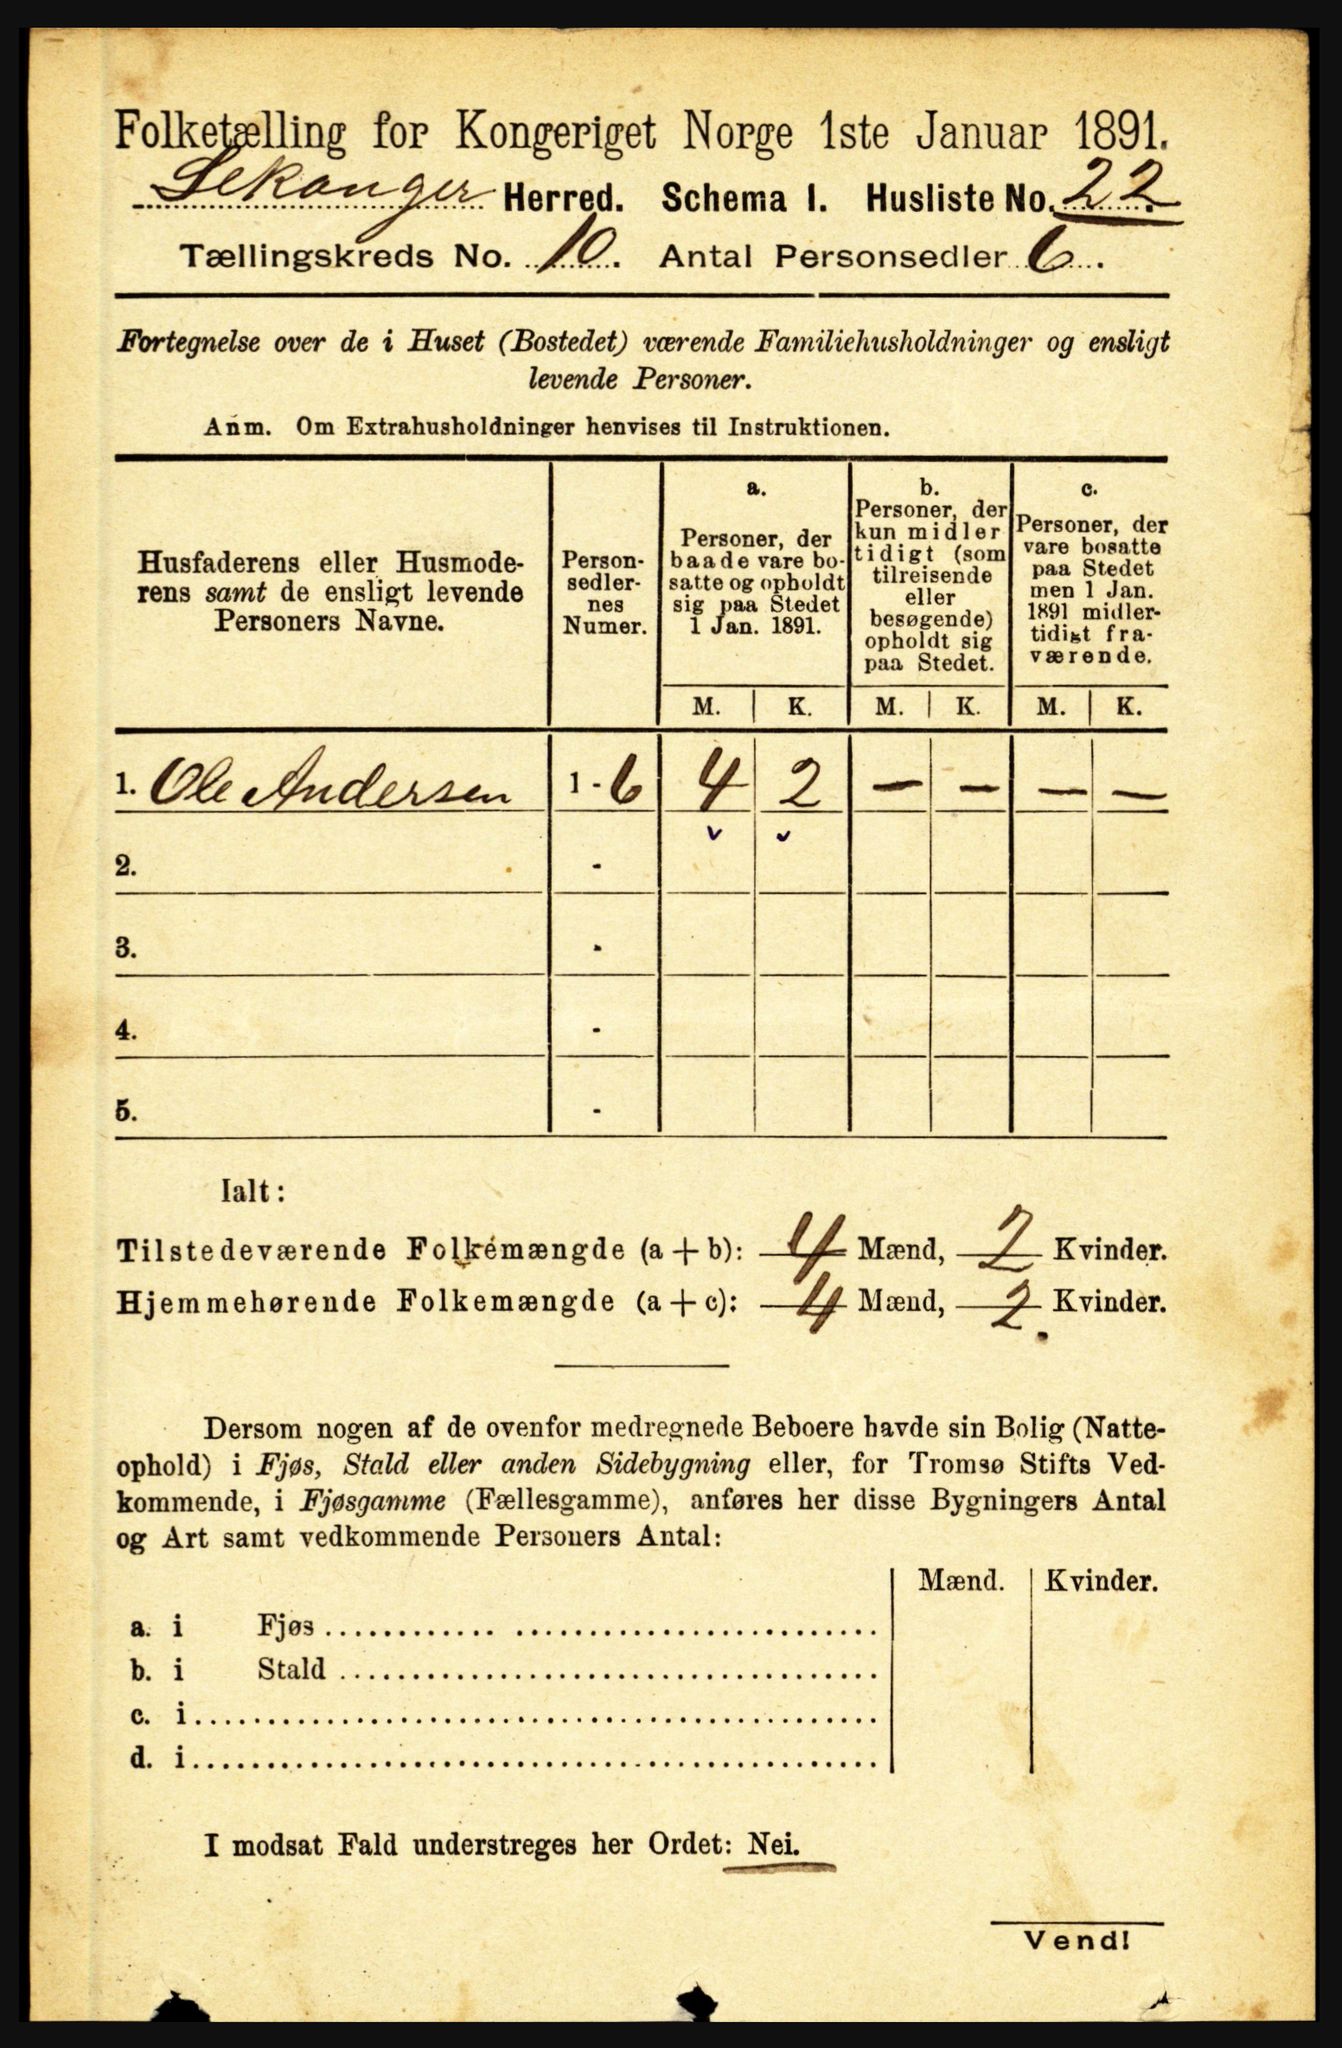 Folketælling for Kongeriget Norge 1ste Januar 1891.
Lekanger Herred. Schema I. Husliste No. 22.
Tællingskreds No. 10. Antal Personsedler 6.
Fortegnelse over de i Huset (Bostedet) værende Familiehusholdninger og ensligt
levende Personer.
Anm. Om Extrahusholdninger henvises til Instruktionen.
Husfaderens eller Husmode-
rens samt de ensligt levende
Personers Navne.
Person-
sedler-
nes
Numer.
a.
Personer, der
baade vare bo-
satte og opholdt
sig paa Stedet
1 Jan. 1891.
b.
Personer, der
kun midler
tidigt (som
tilreisende
eller
besøgende)
opholdt sig
paa Stedet.
c.
Personer, der
vare bosatte
paa Stedet
men 1 Jan.
1891 midler-
tidigt fra-
værende.
M. K. M. K. M. K.
1. Ole Andersen 1 - 6 4 2 — — — —
2. -
3. -
4. -
5. -
Ialt:
Tilstedeværende Folkemængde (a + b): 4 Mænd, 2 Kvinder.
Hjemmehørende Folkemængde (a + c): 4 Mænd, 2 Kvinder.
Dersom nogen af de ovenfor medregnede Beboere havde sin Bolig (Natte-
ophold) i Fjøs, Stald eller anden Sidebygning eller, for Tromsø Stifts Ved-
kommende, i Fjøsgamme (Fællesgamme), anføres her disse Bygningers Antal
og Art samt vedkommende Personers Antal:
Mænd. Kvinder.
a. i Fjøs
b. i Stald
c. i
d. i
I modsat Fald understreges her Ordet: Nei.
Vend!